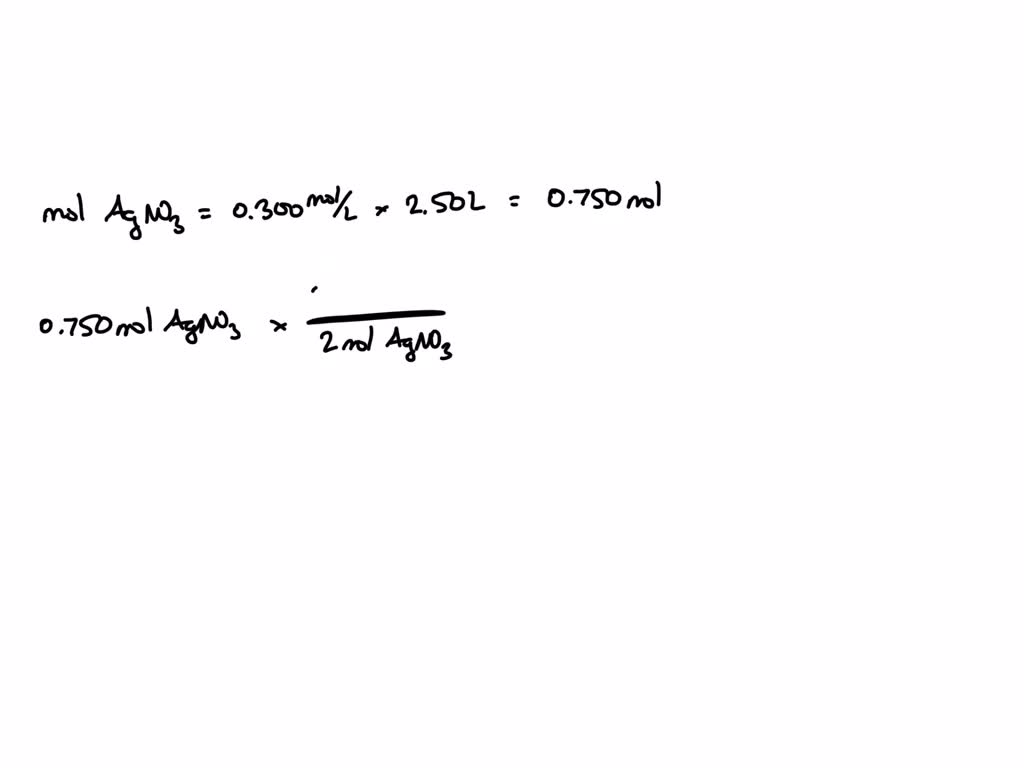 mol AgNO3 = 0.300 mol/L × 2.50L = 0.750 mol
0.750 mol AgNO3 ×
2 mol AgNO3